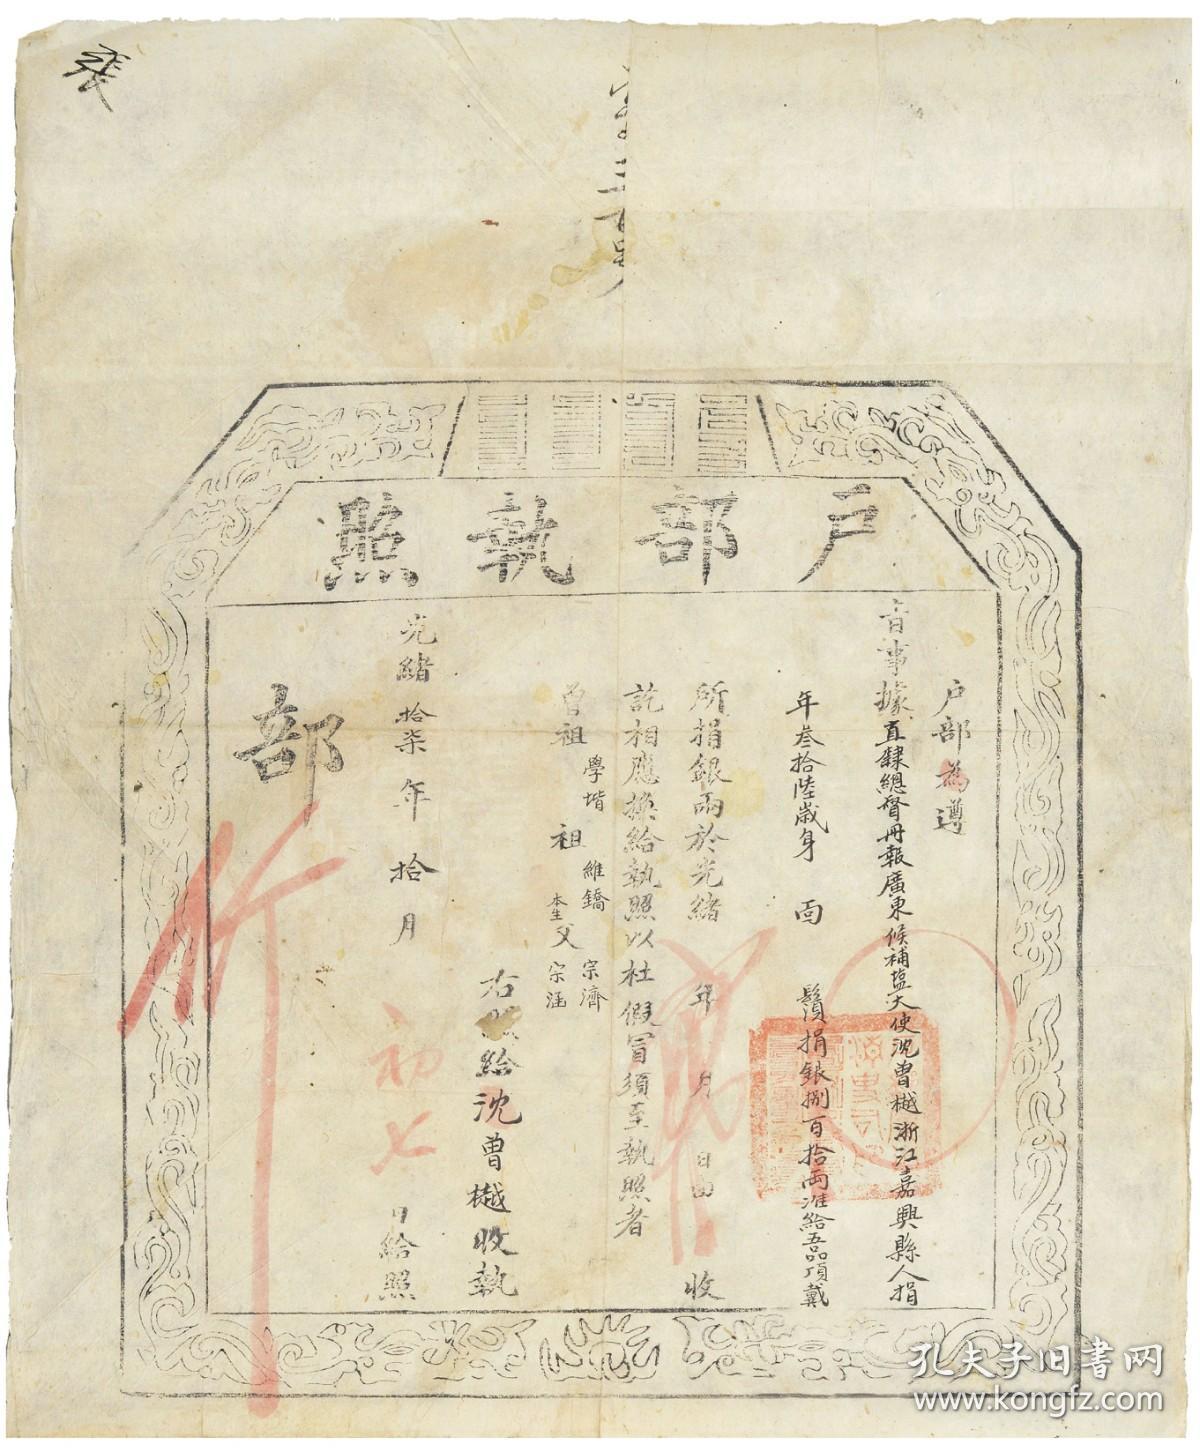 張
戶部執照
戶部為遵
旨事據直隸總督冊報廣東候補塩大使沈曾樾浙江嘉興縣人捐
年叁拾陸歲身 面 鬚捐銀捌百拾兩准給五品頂戴
所捐銀兩於光緒 年 月 日由 收
訖相應換給執照以杜假冒須至執照者
曾祖學堦 祖維鐈 本生父宗濟宗涵
右照給沈曾樾收執
光緒拾柒年拾月初七日給照
部
行
孔夫子旧書网
www.kongfz.com